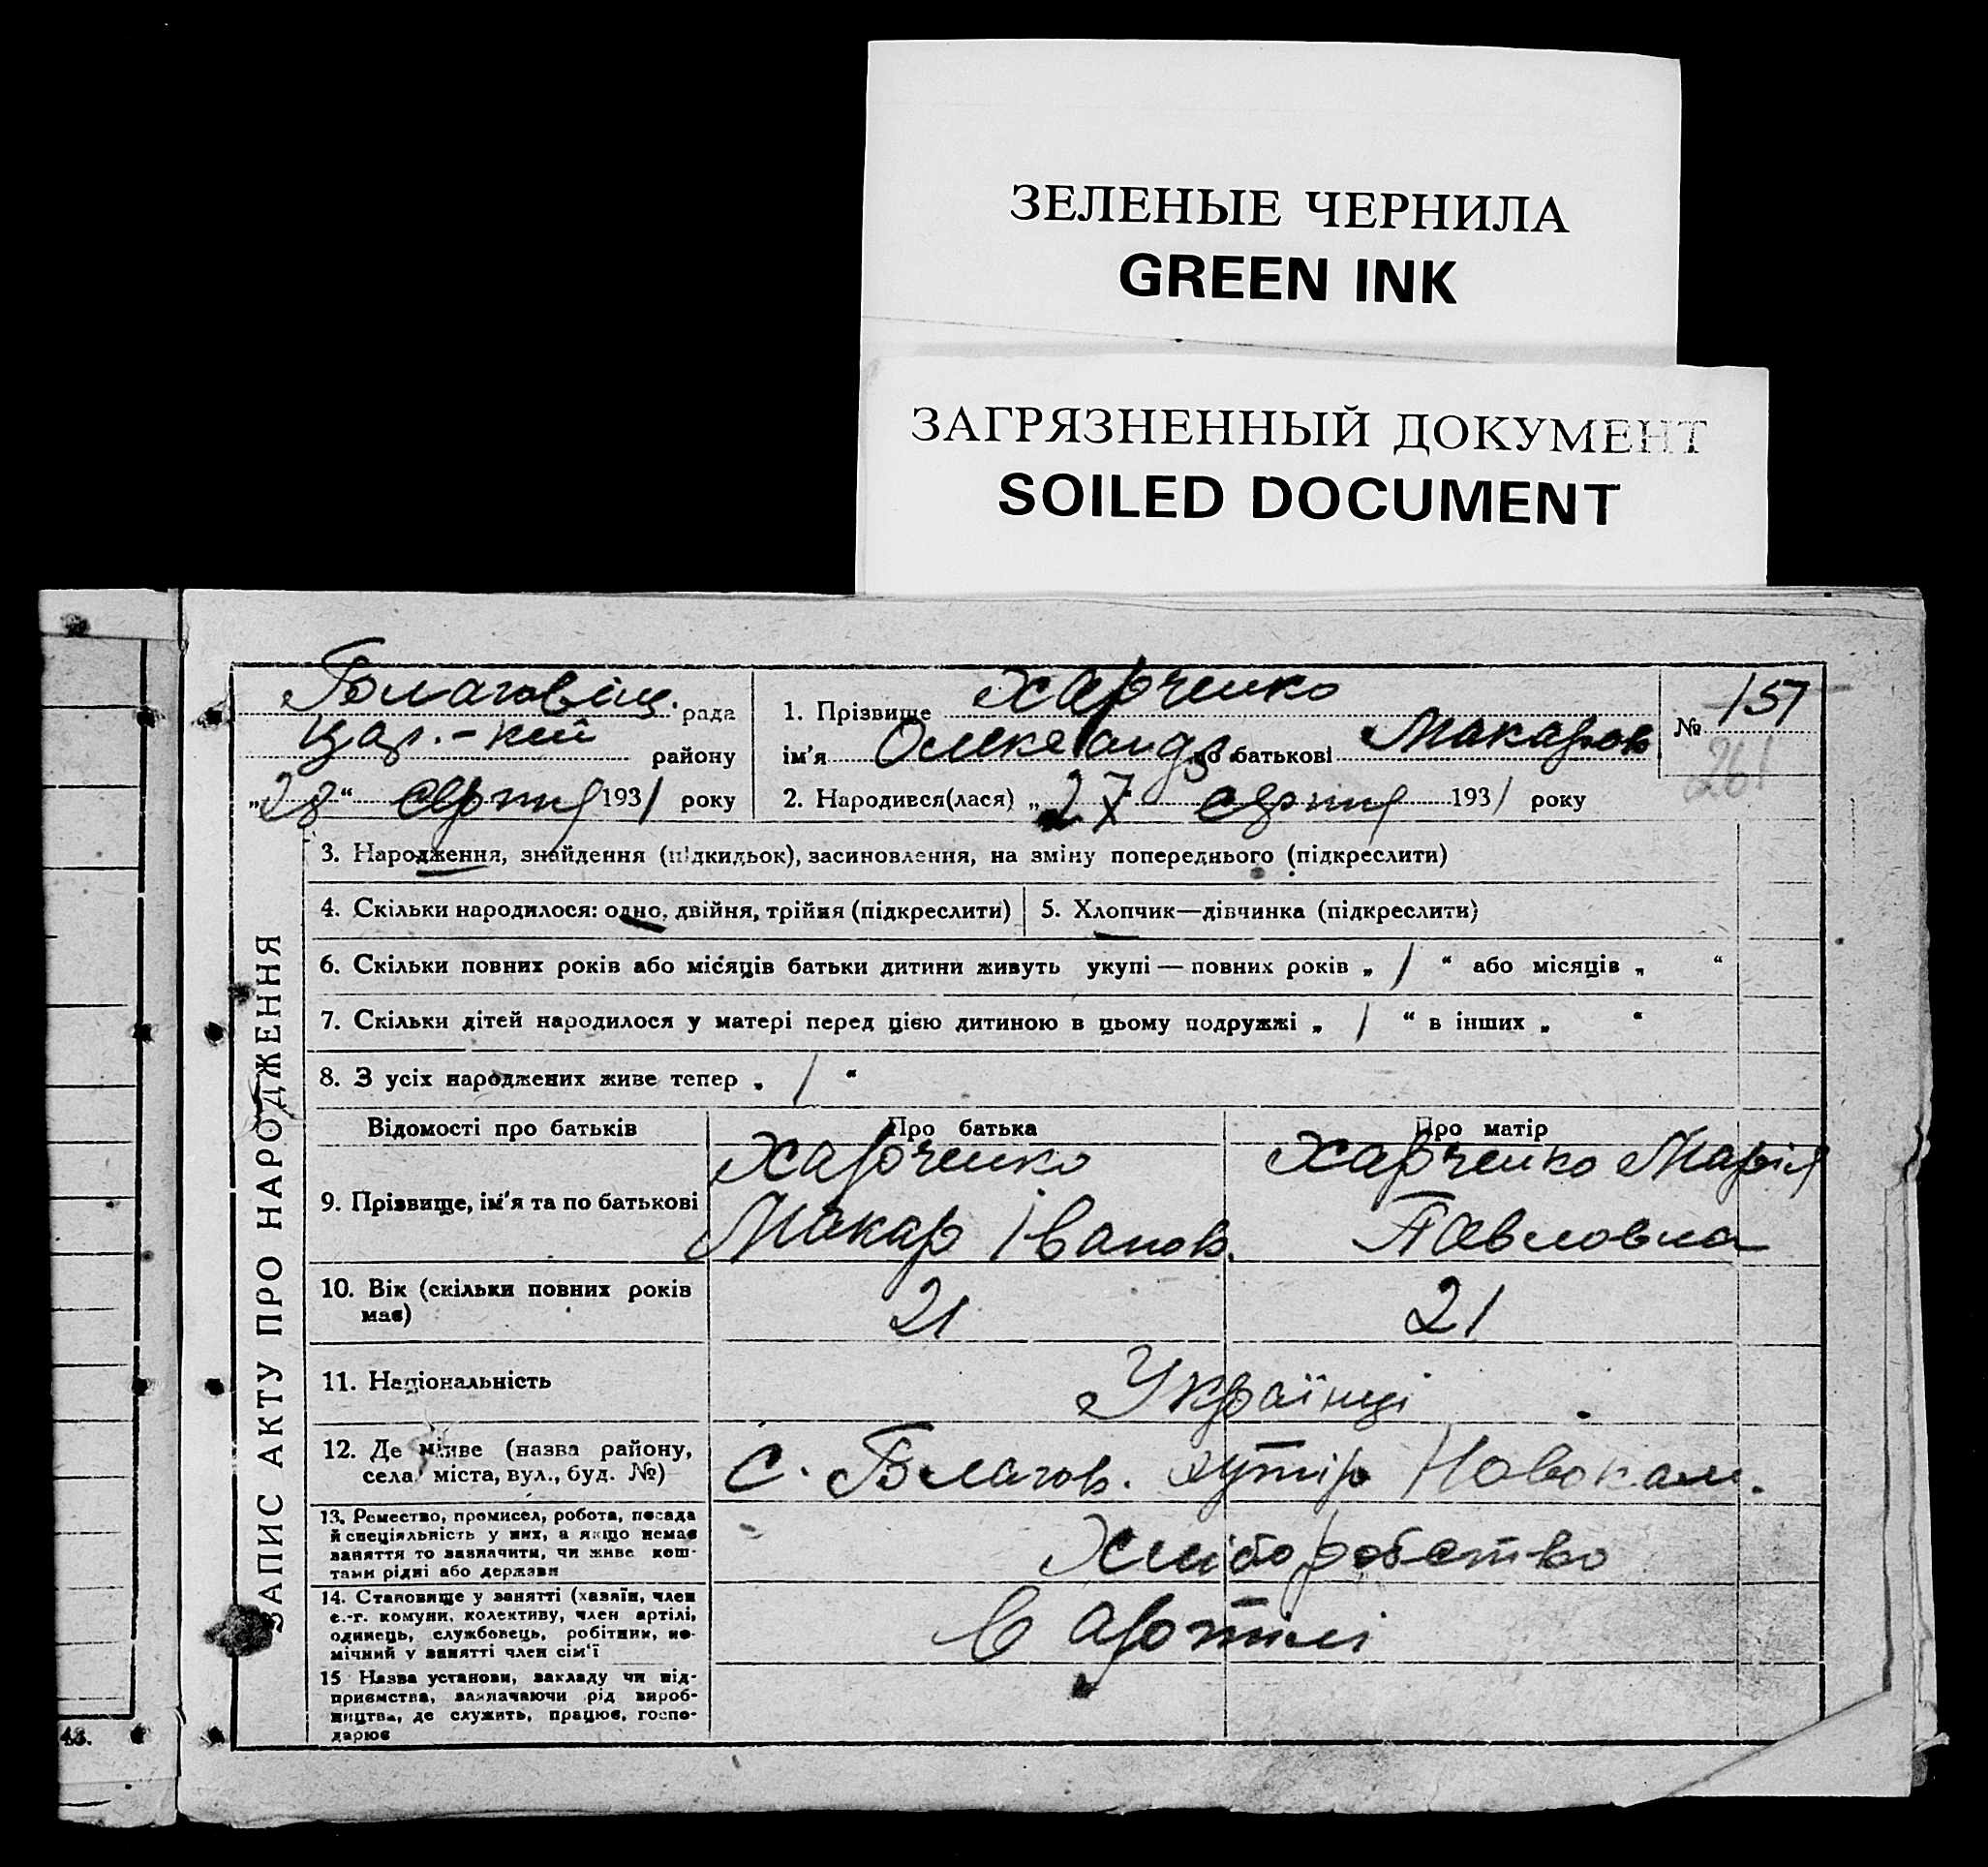 ЗЕЛЕНЫЕ ЧЕРНИЛА
GREEN INK
ЗАГРЯЗНЕННЫЙ ДОКУМЕНТ
SOILED DOCUMENT
Благовіщ. рада
Цар.-кий району
„28“ серпня 1931 року
1. Прізвище Харченко
ім'я Олександр по батькові Макаров
2. Народився(лася) „27“ серпня 1931 року
№ 157
261
ЗАПИС АКТУ ПРО НАРОДЖЕННЯ
3. Народження, знайдення (підкидьок), засиновлення, на зміну попереднього (підкреслити)
4. Скільки народилося: одно, двійня, трійня (підкреслити)
5. Хлопчик—дівчинка (підкреслити)
6. Скільки повних років або місяців батьки дитини живуть укупі — повних років „ 1 “ або місяців „ “
7. Скільки дітей народилося у матері перед цією дитиною в цьому подружжі „ 1 “ в інших „ “
8. З усіх народжених живе тепер „ 1 “
Відомості про батьків Про батька Про матір
9. Прізвище, ім'я та по батькові
Харченко
Макар Іванов.
Харченко Марія
Павловна
10. Вік (скільки повних років
має)
21 21
11. Національність Українці
12. Де живе (назва району,
села, міста, вул., буд. №)
С. Благов. хутір Новокам.
13. Ремество, промисел, робота, посада
й спеціяльність у них, а якщо немає
заняття то зазначити, чи живе кош-
тами рідні або держави
Хліборобство
14. Становище у занятті (хазяїн, член
с.-г. комуни, колективу, член артілі,
одинець, службовець, робітник, по-
мічний у занятті член сім'ї
в артілі
15 Назва установи, закладу чи під-
приємства, зазначаючи рід вироб-
ництва, де служить, працює, госпо-
дарює
43.